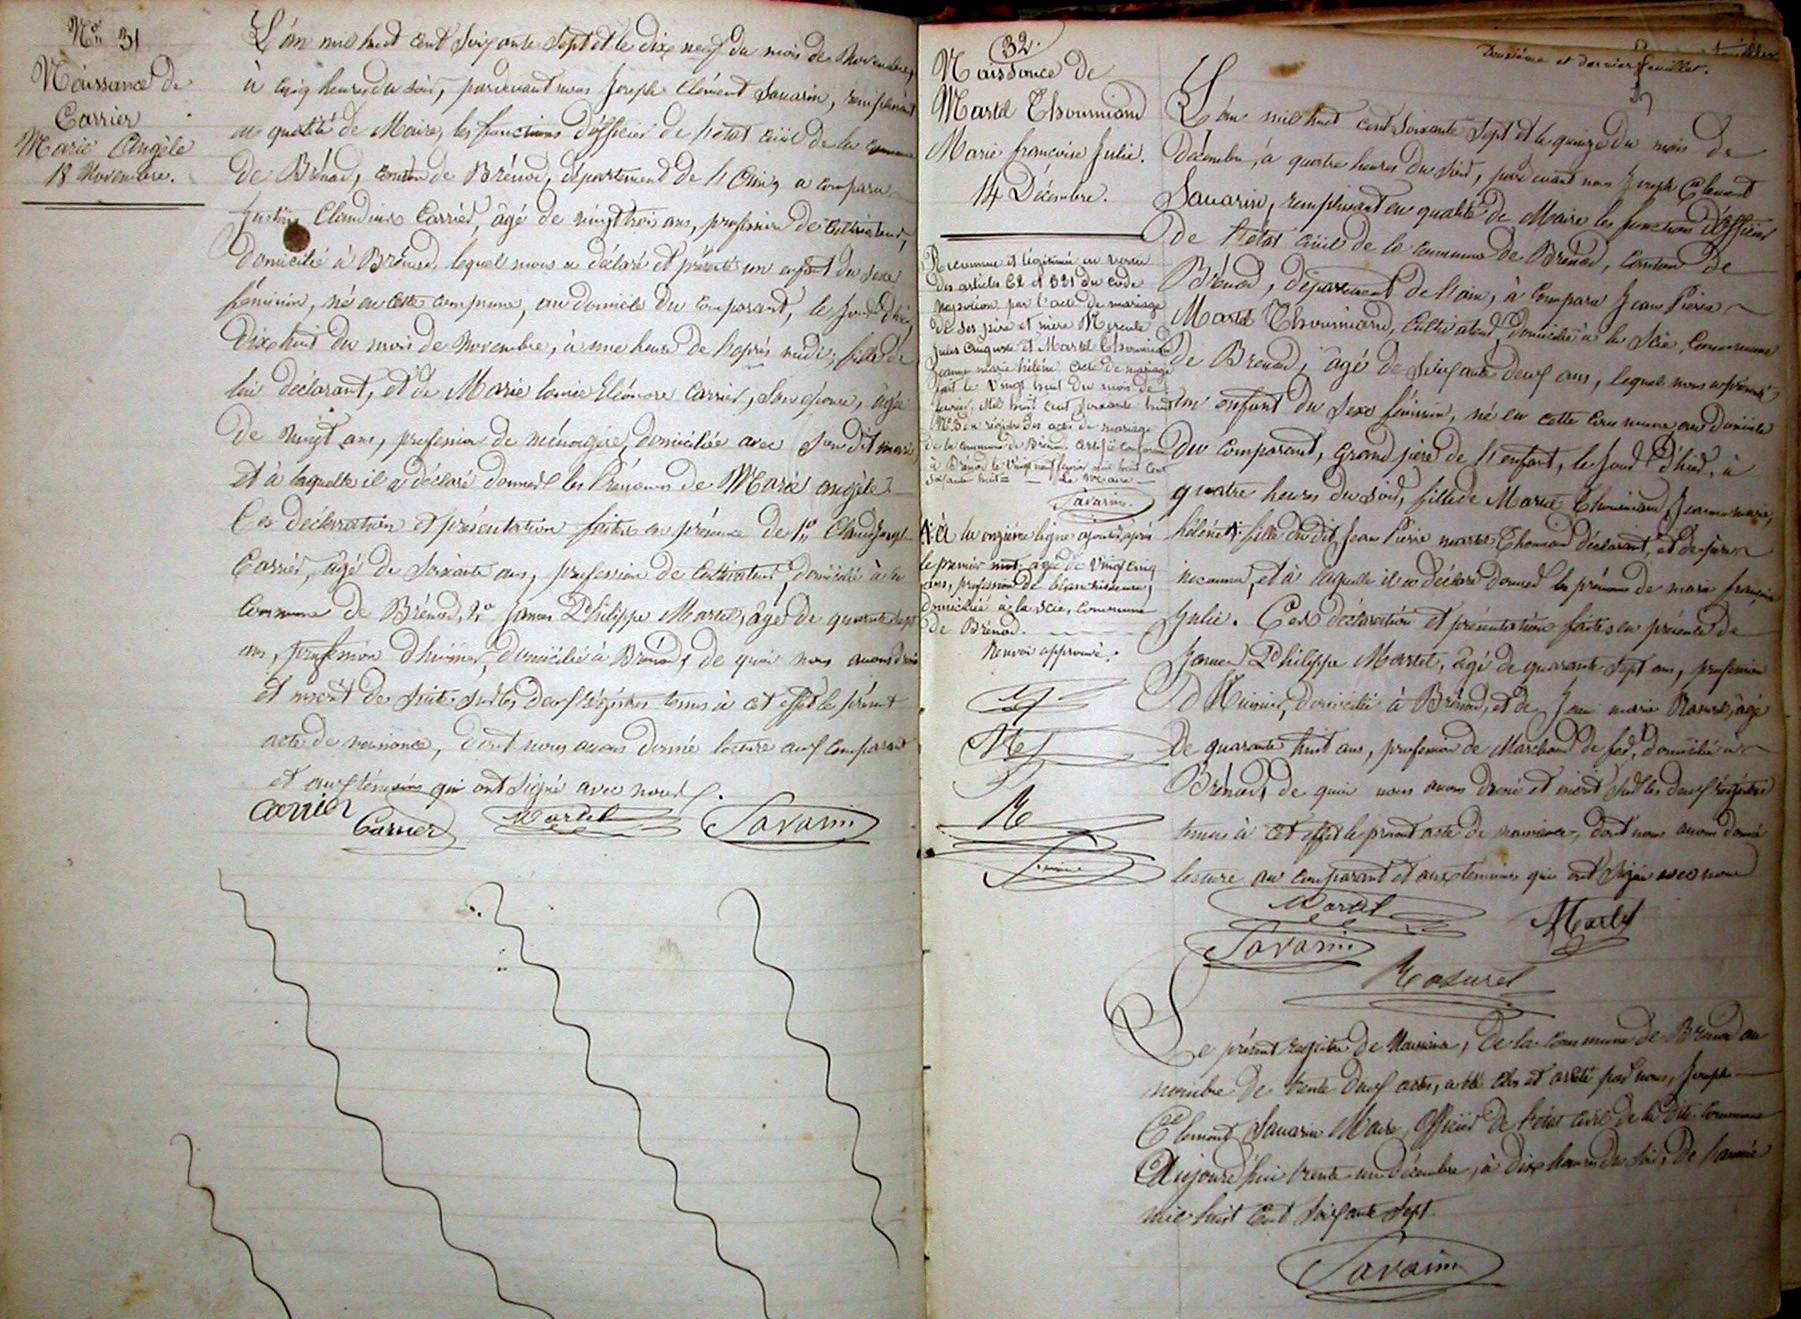 Nº 31
Naissance de
Carrier
Marie Angèle
18 Novembre.
L'an mil huit cent soixante sept et le dix neuf du mois de Novembre,
à cinq heures du soir, pardevant nous Joseph Clément Savarin, remplissant
en qualité de Maire, les fonctions d'officier de l'état civil de la commune
de Brénod, canton de Brénod, département de l'Ain, a comparu
Claudius Carrier, âgé de vingt trois ans, profession de cultivateur,
domicilié à Brénod, lequel nous a déclaré et présenté un enfant du sexe
féminin, né en cette commune, au domicile du comparant, le jour d'hier,
dix huit du mois de Novembre, à une heure de l'après midi, fille de
lui déclarant, et de Marie Eléonore Carrier, son épouse, âgée
de vingt ans, profession de ménagère, domiciliée avec son dit mari
et à laquelle il a déclaré donner les Prénoms de Marie angèle.
Ces déclaration et présentation faites en présence de 1º Claude Joseph
Carrier, âgé de soixante ans, profession de cultivateur, domicilié à la
commune de Brénod, 2º Philippe Martel, âgé de quarante sept
ans, profession d'huissier, domicilié à Brénod, de quoi nous avons dressé
et inscrit de suite sur les deux régistres tenus à cet effet le présent
acte de naissance, dont nous avons donné lecture aux comparant
et aux témoins qui ont signé avec nous.
Carrier Carrier Martel Savarin
32.
Naissance de
Martel Thoumiand
Marie françoise Julie.
14 Décembre.
Reconnue et légitimée en vertu
des articles et 331 du code
napoléon par l'acte de mariage
de ses père et mère
Jules Auguste et Martel
Jeanne marie hélène acte de mariage
fait le vingt huit du mois de
février mil huit cent soixante huit
Nº 3 du régistre des actes de mariage
de la commune de Brénod certifié conforme
à Brénod le vingt neuf février mil huit cent
soixante huit Le Maire
Savarin
À la onzième ligne ajouté après
le premier mot, âgée de vingt cinq
ans, profession de blanchisseuse,
domiciliée à la scie, commune
de Brénod.
Renvoi approuvé.
Douzième et dernier feuillet.
L'an mil huit cent soixante sept et le quinze du mois de
décembre, à quatre heures du soir, par devant nous Joseph Clément
Savarin, remplissant en qualité de Maire les fonctions d'officier
de l'état civil de la commune de Brénod, canton de
Brénod, département de l'ain, à comparu Jean Pierre
Martel Thoumiand, Cultivateur, domicilié à la Scie, commune
de Brenod, âgé de soixante deux ans, lequel nous a présenté
un enfant du sexe féminin, né en cette commune au domicile
du comparant, grand père de l'enfant, le jour d'hier, à
quatre heures du soir, fille de Martel Thoumiand, Jeanne marie,
hélène, fille du dit Jean Pierre martel Thoumiand déclarant, et de père
inconnu, et à laquelle il a déclaré donner les prénoms de marie françoise
Julie. Ces déclaration et présentation faites en présence de
Philippe Martel, âgé de quarante sept ans, profession
d'Huissier, domicilié à Brénod, et de Jean marie Rosurel, âgé
de quarante huit ans, profession de Marchand de fer, domicilié à
Brénod, de quoi nous avons dressé et inscrit sur les deux régistres
tenus à cet effet le présent acte de naissance, dont nous avons donné
lecture au comparant et aux témoins qui ont signé avec nous
Martel Martel
Savarin
Rosurel
Le présent registre de Naissance, de la commune de Brénod au
nombre de trente deux actes, a été clos et arrêté par nous, Joseph
Clément Savarin Maire, Officier de l'état civil de la dite commune
Aujourd'hui trente un décembre, à dix heures du soir, de l'année
mil huit cent soixante sept.
Savarin